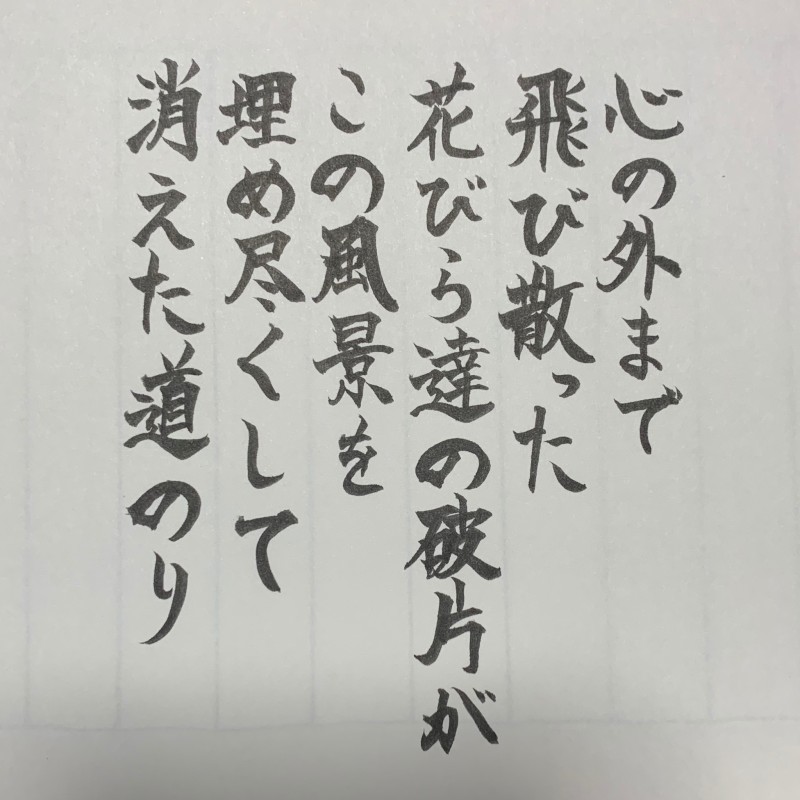 心の外まで
飛び散った
花びら達の破片が
この風景を
埋め尽くして
消えた道のり